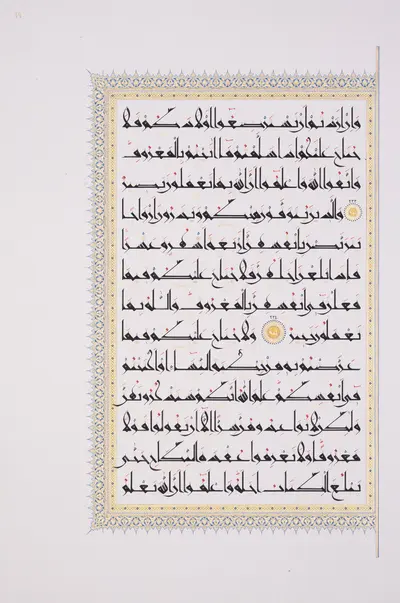 وإن أردتم أن تسترضعوا أولادكم فلا
جناح عليكم إذا سلمتم ما آتيتم بالمعروف
واتقوا الله واعلموا أن الله بما تعملون بصير
والذين يتوفون منكم ويذرون أزواجا
يتربصن بأنفسهن أربعة أشهر وعشرا
فإذا بلغن أجلهن فلا جناح عليكم فيما
فعلن في أنفسهن بالمعروف والله بما
تعملون خبير ولا جناح عليكم فيما
عرضتم به من خطبة النساء أو أكننتم
في أنفسكم علم الله أنكم ستذكرونهن
ولكن لا تواعدوهن سرا إلا أن تقولوا قولا
معروفا ولا تعزموا عقدة النكاح حتى
يبلغ الكتاب أجله واعلموا أن الله يعلم